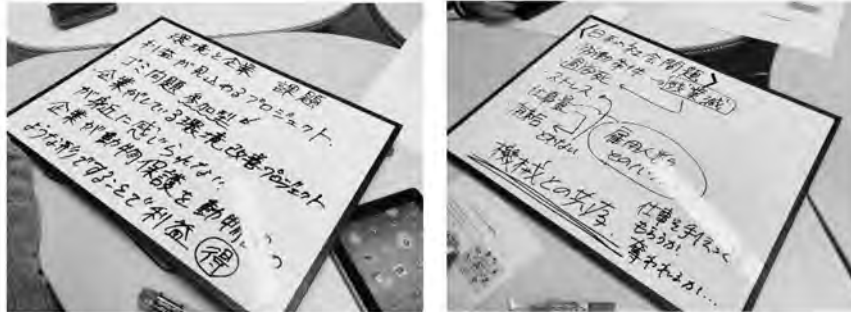 環境と企業
課題
利益が見込めるプロジェクト.
ゴミ問題 参加型が
企業がしている環境改善プロジェクト
が身近に感じられない.
企業が動物保護を
ような形ですることで利益 得
〈日本の社会問題〉
労働条件 残業減
過労死
ストレス
仕事量
有給 とれない
雇用人数
機械との共存
仕事を手伝って
もらうか
奪われるか…